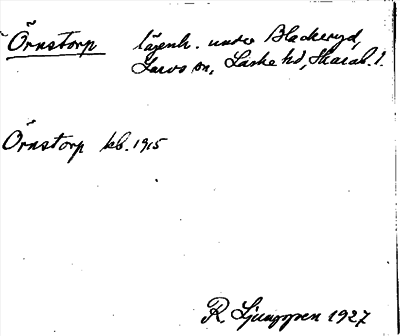 Örnstorp lägenh. under Blackeryd,
Larvs sn, Laske hd, Skarab. l.
Örnstorp kb. 1915
R Ljunggren 1927